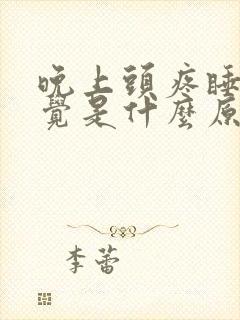 晚上頭疼睡
覺是什麼原
李蕾